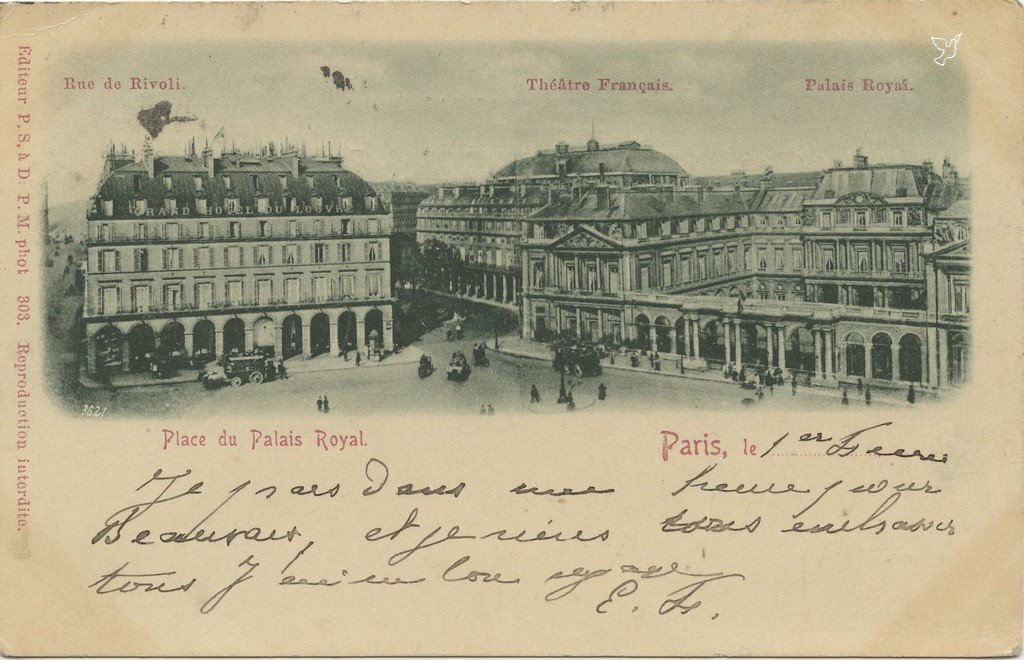 Rue de Rivoli.
Théâtre Français.
Palais Royal.
GRAND HOTEL DU LOUVRE
3621
Editeur P. S. à D. P. M. phot 303. Reproduction interdite.
Place du Palais Royal.
Paris, le 1er
Je pars dans une heure pour
Beauvais, et je viens vous embrasser
tous J'ai un bon voyage
E. F.